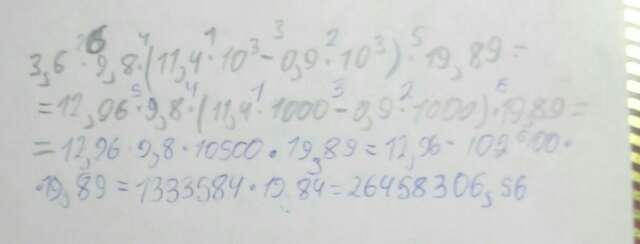 3,6² · 9,8 · (11,4 · 10³ - 0,9 · 10³) · 19,89 =
= 12,96 · 9,8 · (11,4 · 1000 - 0,9 · 1000) · 19,89 =
= 12,96 · 9,8 · 10500 · 19,89 = 12,96 · 102900 ·
· 19,89 = 1333584 · 19,84 = 26458306,56